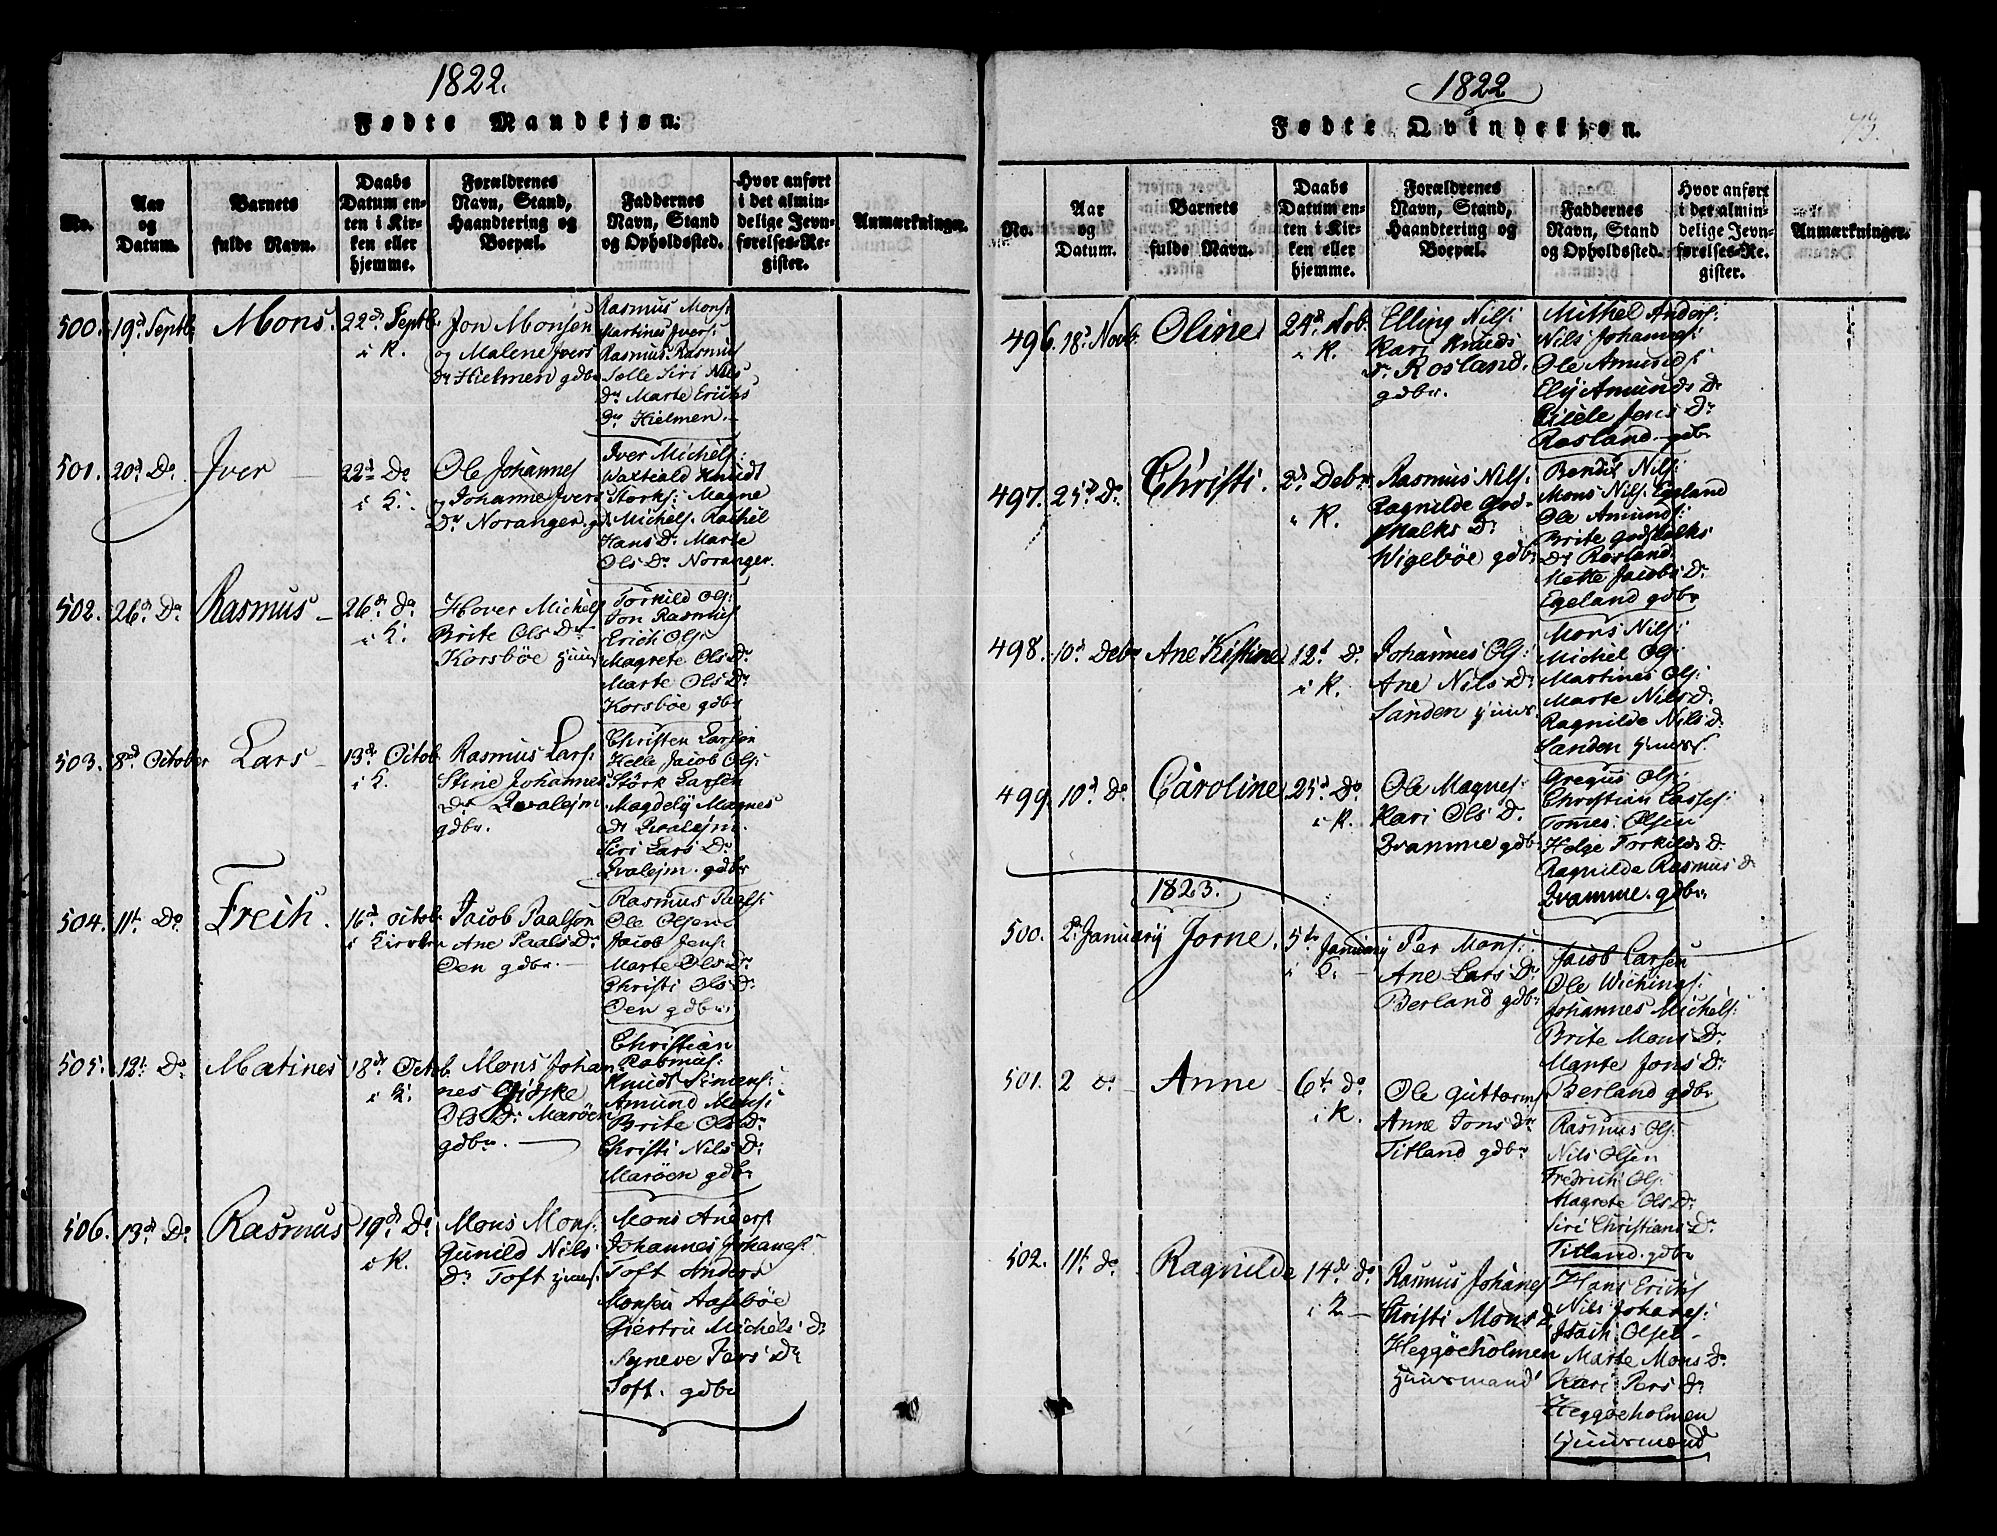 1822.
Fødte Mandkjøn.
No.
Aar
og
Datum.
Barnets
fulde Navn.
Daabs
Datum en-
ten i Kir-
ken eller
hjemme.
Forældrenes
Navn, Stand,
Haandtering og
Boepæl.
Faddernes
Navn, Stand
og Opholdssted.
Hvor anført
i det almin-
delige Jevn-
førelses-Re-
gister.
Anmærkninger.
500. 19d Septb Mons. 22d Septb.
i K.
Jon Monsen
og Malene Ivers
Dr Hielmen gdbr
Rasmus Mons:
Martines Ivers:
Rasmus Rasmus
Siri Nils
Dr Marte Erichs
Dr Hielmen.
501. 20d Do Iver 22d Do
i K.
Ole Johannes
og Johanne Ivers
Dr Noranger. gd.
Iver Michels:
Knudt
Storks: Magne
Michels. Rachel
Hans Dr Marte
Ols Dr Noranger.
502. 26d Do Rasmus 26d do
i K.
Hover Michels
Brite Ols Dr
Korsbøe huus
Torkild Ols:
Jon Rasmus
Erich Ols:
Magrete Ols Dr
Marte Ols Dr
Korsbøe gdbr
503. 8d October Lars 13d Octob.
i K.
Rasmus Lars:
Stine Johannes
Dr Qvalejm
gdbr.
Christen Larsen
Helle Jacob Ols:
Størk Larsen
Magdely Magnes
Dr Qvalejm.
Siri Lars Dr
Qvalejm. gdbr
504. 11t Do Freih. 16d Octob.
i Kirken
Jacob Paalsen
Ane Paals Dr
Øen gdbr.
Rasmus Paals:
Ole Olsen
Jacob Jens:
Marte Ols Dr
Christi Ols Dr
Øen gdbr
505. 12t Do Matines 18d Octob.
i K.
Mons Johan
nes Giøske
Ols Dr Marøen
gdbr.
Christian
Rasmus:
Knudt Simens:
Amund Mons:
Brite Ols Dr
Christi Nils Dr
Marøen gdbr
506. 13d Do Rasmus 19d Do
i K.
Mons Mons:
Gunild Nils
Dr Toft huus.
Mons Anders
Johannes Johanes:
Toft Anders
Monsen Aasebøe
Giertru Michels Dr
Syneve Pers Dr
Toft. gdbr
1822
Fødte Qvindekjøn.
73.
No.
Aar
og
Datum.
Barnets
fulde Navn.
Daabs
Datum en-
ten i Kir-
ken eller
hjemme.
Forældrenes
Navn, Stand,
Haandtering og
Boepæl.
Faddernes
Navn, Stand
og Opholdssted.
Hvor anført
i det almin-
delige Jevn-
førelses-Re-
gister.
Anmærkninger.
496. 18d Novb. Oline 24d Nob.
i K.
Elling Nils:
Kari Knuds
Dr Rosland.
gdbr.
Mithel Anders:
Nils Johanes:
Ole Amunds
Ely Amunds Dr
Jens Dr
Rosland. gdbr
497. 25d Do. Christi. 2d Debr.
i K.
Rasmus Nils:
Ragnilde God-
skalks Dr
Wigebøe gdbr
Bendit Nils:
Mons Nils: Egeland
Ole Amunds:
Brite Godskalks
Dr Rosland.
Mette Jacobs Dr
Egeland gdbr
498. 10d Debr Ane Kistine 12t Do
i K.
Johannes Ols:
Ane Nils Dr
Sanden huus.
Mons Nils:
Michel Ols
Martines Ols:
Marte Nils Dr
Ragnilde Nils Dr
Sanden huus.
499. 10d Do Caroline 25d Do
i K.
Ole Magnes:
Kari Ols Dr
Qvamme gdb.
Gregus Ols:
Christian Lasses:
Tomes Olsen
Helge Torkilds Dr
Ragnilde Rasmus Dr
Qvamme. gdbr
1823.
500. 2d January Jorne. 5te January
i K.
Per Mons:
Ane Lars Dr
Berland gdbr
Jacob Larsen
Ole Wichings:
Johannes Michels:
Brite Mons Dr
Mante Jons Dr
Berland gdbr
501. 2 do Anne 6t do
i K.
Ole Guttorms
Anne Jons Dr
Titland gdbr
Rasmus Ols:
Nils Olsen
Fredrich Ols:
Magrete Ols Dr
Siri Christians Dr
Titland. gdbr
502. 11t do Ragnilde 14d do
i K
Rasmus Johanes
Christi Mons D
Heggøeholmen
Huusmand
Hans Erichs
Nils Johanes:
Isach Olsen
Marte Mons Dr
Kari Pers Dr
Heggøeholmen
Huusmænd